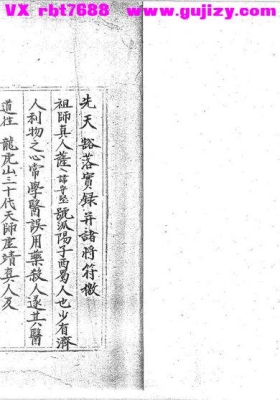 VX rbt7688 www.gujizy.com
先天豁落寳録并諸将符檄
祖師真人薩諱守堅號汾陽子西蜀人也少有濟
人利物之心常學醫誤用藥殺人遂棄其醫
道往 龍虎山三十代天師虛靖真人及